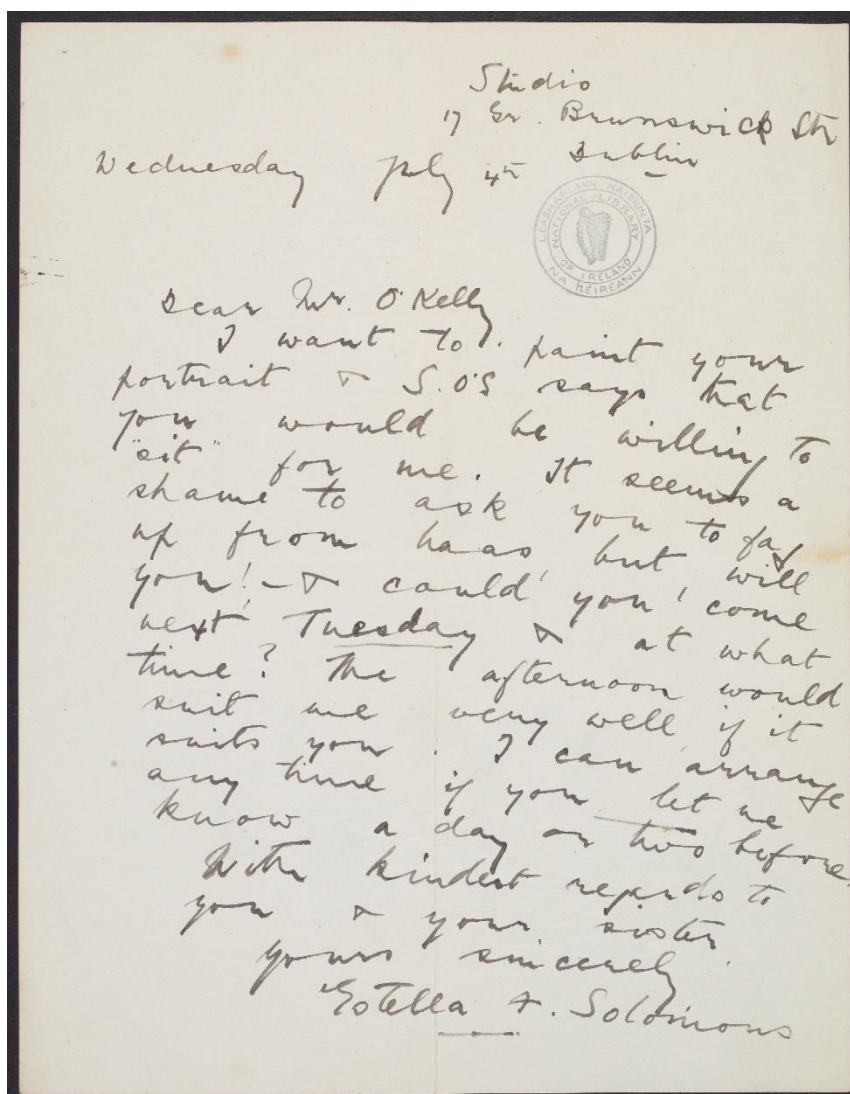 Studio
17 Gr. Brunswick Str
Dublin
Wednesday July 4th
LEABHARLANN NAISIUNTA
NA HÉIREANN
NATIONAL LIBRARY
OF IRELAND
Dear Mr. O'Kelly
I want to paint your
portrait & S. O'S says that
you would be willing to
"sit" for me. It seems a
shame to ask you to fag
up from Naas, but will
you! - & could you, come
next Tuesday & at what
time? The afternoon would
suit me very well, if it
suits you. I can arrange
any time if you let me
know a day or two before.
With kindest regards to
you & your sister.
yours sincerely
Estella F. Solomons